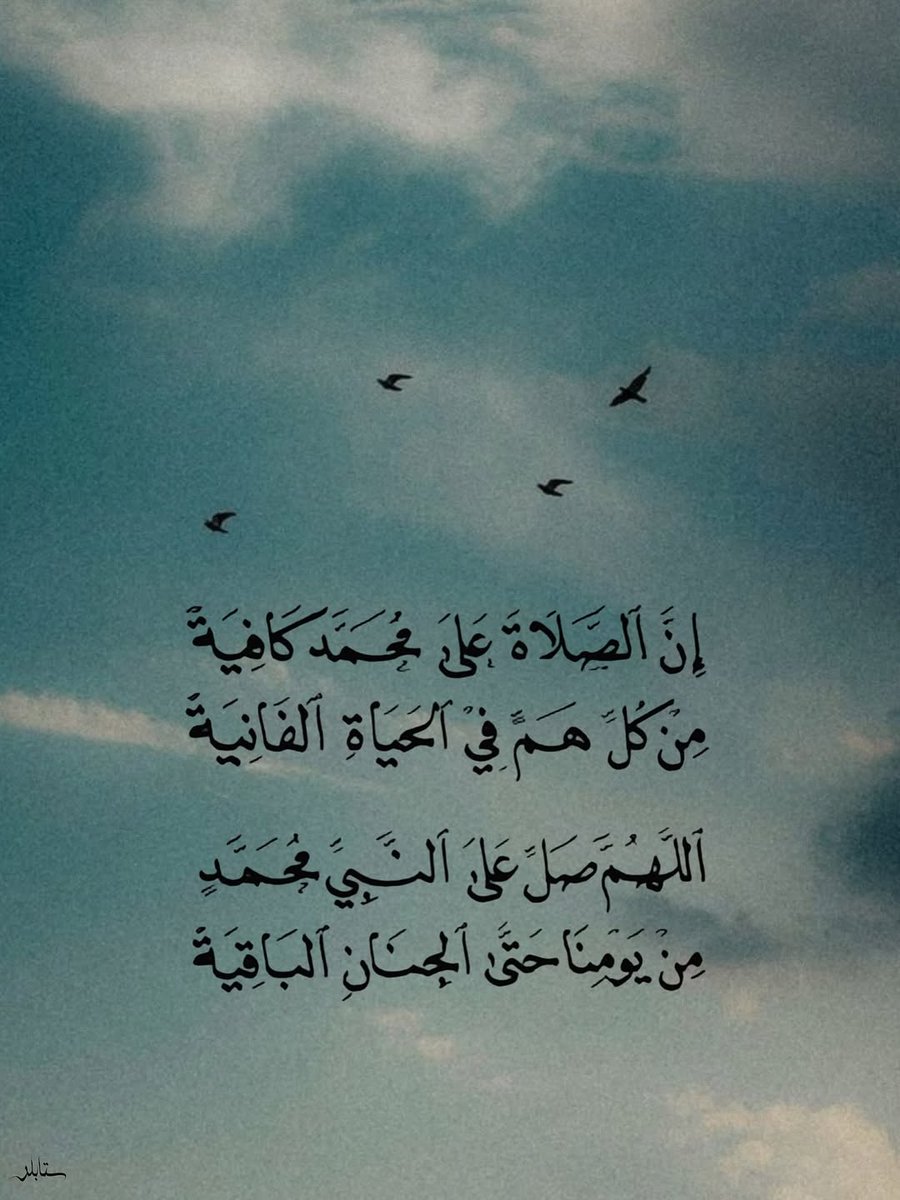 إِنَّ ٱلصَّلَاةَ عَلَىٰ مُحَمَّد كَافِيَةً
مِنْ كُلِّ هَمٍّ فِيْ ٱلحَيَاةِ ٱلفَانِيَةً
ٱللَّهُمَّ صَلِّ عَلَىٰ ٱلنَّبِيِّ مُحَمَّدٍ
مِنْ يَوْمِنَا حَتَّىٰ ٱلجِنَانِ ٱلبَاقِيَةً
ستابلر